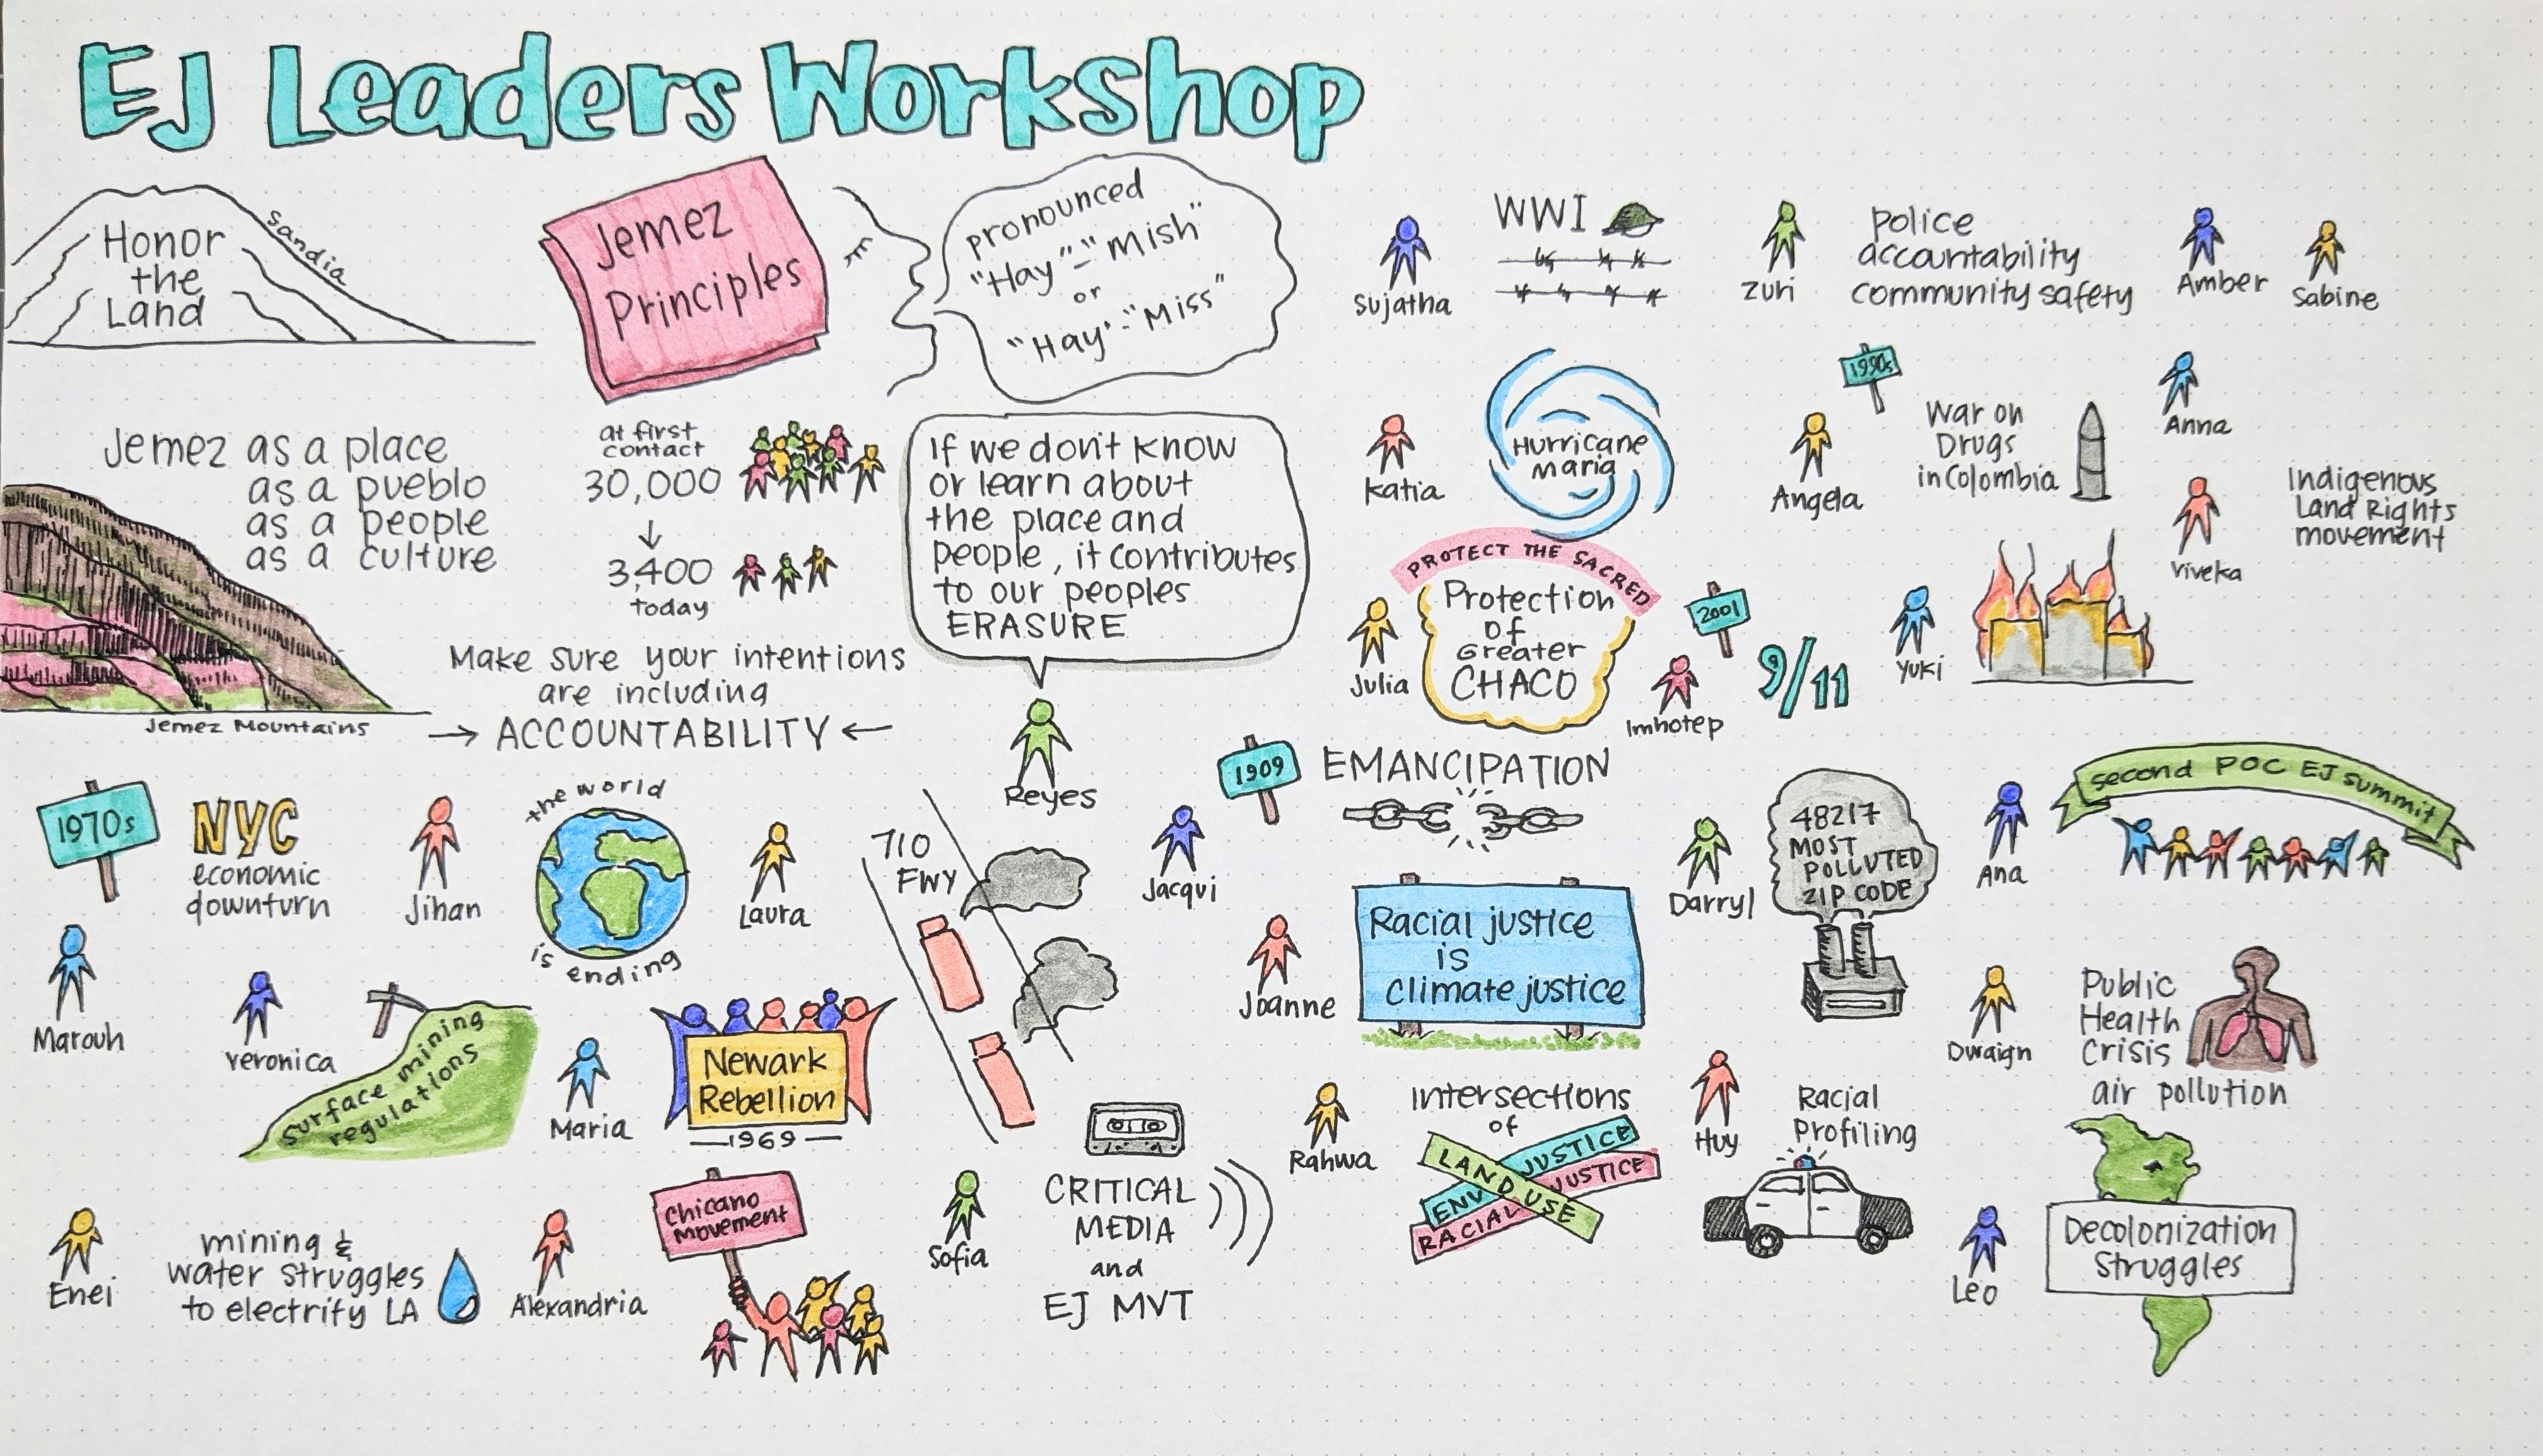 EJ Leaders Workshop
Honor
the
Land
Sandia
Jemez
Principles
pronounced
"Hay"-"Mish"
or
"Hay"-"Miss"
Jemez as a place
as a pueblo
as a people
as a culture
Jemez Mountains
at first
contact
30,000
3,400
today
If we don't know
or learn about
the place and
people, it contributes
to our peoples
ERASURE
Reyes
Make sure your intentions
are including
→ ACCOUNTABILITY ←
Sujatha
WWI
Zuri
police
accountability
community safety
Amber
Sabine
Katia
Hurricane
Maria
1990s
Angela
War on
Drugs
in Colombia
Anna
Viveka
Indigenous
Land Rights
movement
PROTECT THE SACRED
Protection
of
Greater
CHACO
Julia
2001
Imhotep
9/11
Yuki
1970s
NYC
economic
downturn
Marouh
Jihan
the world
is ending
Laura
710
FWY
Jacqui
1909
EMANCIPATION
Darryl
48217
MOST
POLLUTED
ZIP CODE
Ana
second POC EJ summit
Veronica
surface mining
regulations
Maria
Newark
Rebellion
1969
Joanne
Racial justice
is
climate justice
Dwaign
Public
Health
Crisis
air pollution
Enei
mining &
water struggles
to electrify LA
Alexandria
Chicano
Movement
Sofia
CRITICAL
MEDIA
and
EJ MVT
Rahwa
Intersections
of
LAND USE
ENV JUSTICE
RACIAL JUSTICE
Huy
Racial
Profiling
Leo
Decolonization
Struggles